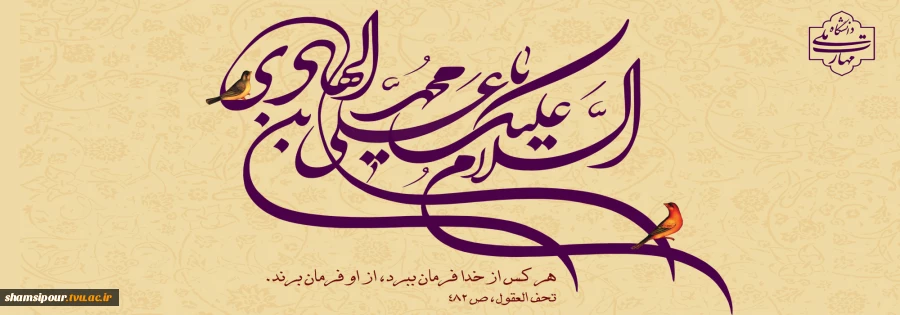 السلام علیک یا علی بن محمد الهادی
دانشگاه
ملی
مهارت
هر کس از خدا فرمان ببرد، از او فرمان برند.
تحف العقول، ص ۴۸۲
shamsipour.tvu.ac.ir